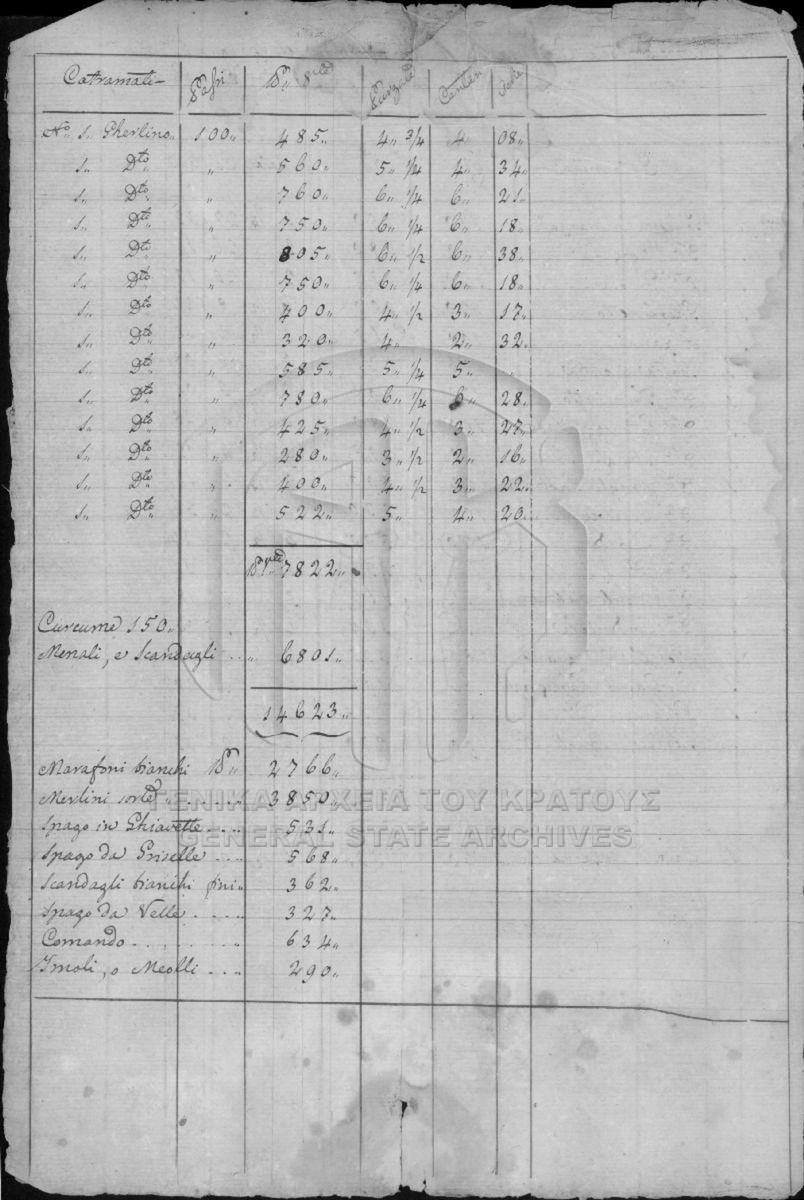 Catramati Passi
No. 1,, Gherlino,, 100,, 485,, 4,, 3/4 4,, 08,,
1,, Dto,, ,, 560,, 5,, 1/4 4,, 34,,
1,, Dto,, ,, 760,, 6,, 1/4 6,, 21,,
1,, Dto,, ,, 750,, 6,, 1/4 6,, 18,,
1,, Dto,, ,, 805,, 6,, 1/2 6,, 38,,
1,, Dto,, ,, 750,, 6,, 1/4 6,, 18,,
1,, Dto,, ,, 400,, 4,, 1/2 3,, 17,,
1,, Dto,, ,, 320,, 4,, 2,, 32,,
1,, Dto,, ,, 585,, 5,, 1/4 5,, ,,
1,, Dto,, ,, 780,, 6,, 1/4 6,, 28,,
1,, Dto,, ,, 425,, 4,, 1/2 3,, 27,,
1,, Dto,, ,, 280,, 3,, 1/2 2,, 16,,
1,, Dto,, ,, 400,, 4,, 1/2 3,, 22,,
1,, Dto,, ,, 522,, 5,, 4,, 20,,
7822,,
Curcume 150,,
Menali, e Scandagli ,, 6801,,
14623,,
Marafoni bianchi 2766,,
Merlini sorte 3850,,
Spago in Ghiavette 531,,
Spago da Griselle 568,,
Scandagli bianchi fini,, 362,,
Spago da Velle 327,,
Comando 634,,
Imoli, o Meolli 290,,
ΓΕΝΙΚΑ ΑΡΧΕΙΑ ΤΟΥ ΚΡΑΤΟΥΣ
GENERAL STATE ARCHIVES